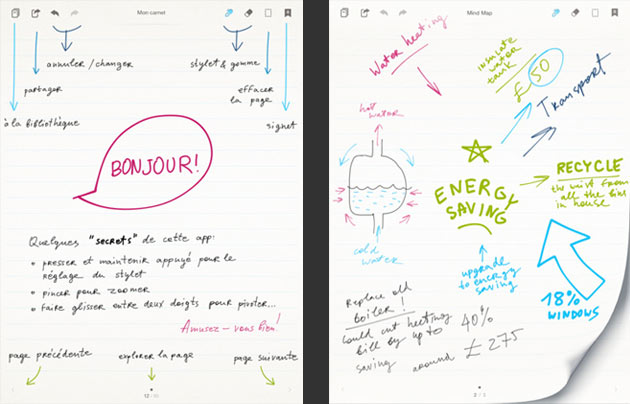 Mon carnet
annuler / changer
stylet & gomme
partager
effacer
la page
à la bibliothèque
signet
BONJOUR!
Quelques "secrets" de cette app:
• presser et maintenir appuyé pour le
réglage du stylet
• pincer pour zoomer
• faire glisser entre deux doigts pour pivoter...
Amusez-vous bien!
page précédente
explorer la page
page suivante
Mind Map
Water heating
insulate
water
tank
£50
Transport
hot
water
ENERGY
SAVING
RECYCLE
the
from
all the bins
in house
cold
water
upgrade
to energy
saving
18%
WINDOWS
Replace old
boiler!
Could cut heating
bill by up to 40%
saving around £275